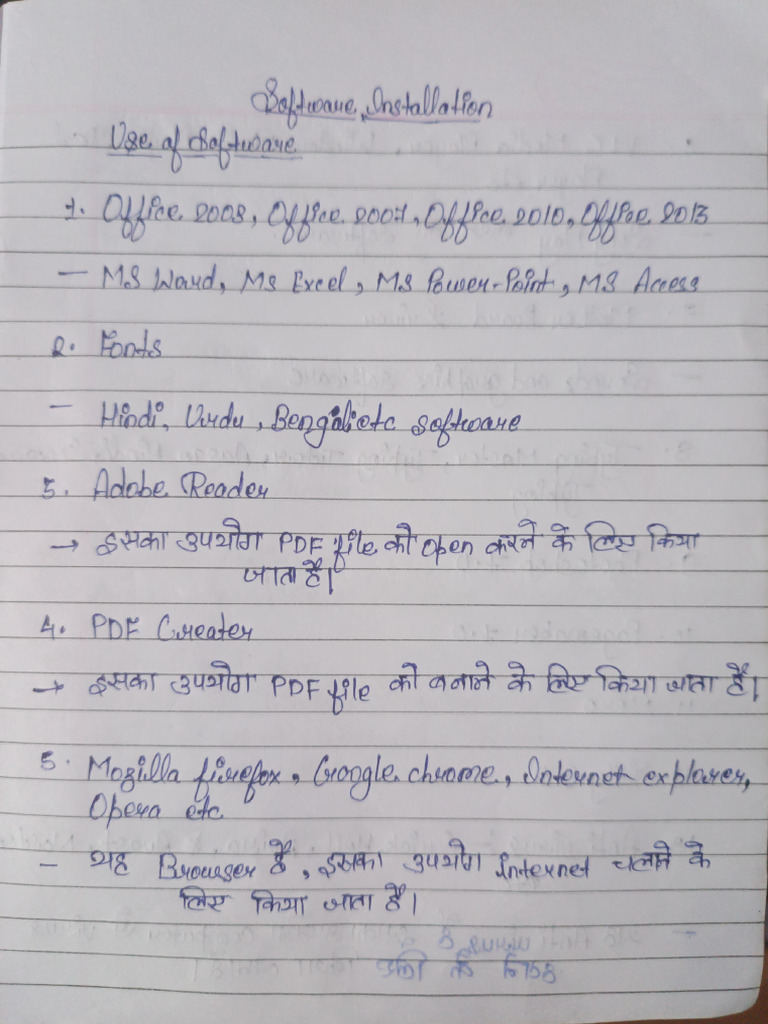 Software Installation
Use of Software
1. Office 2003, Office 2007, Office 2010, Office 2013
— MS Word, Ms Excel, MS Power-Point, MS Access
2. Fonts
— Hindi, Urdu, Bengali etc software
3. Adobe Reader
→ इसका उपयोग PDF file को open करने के लिए किया
जाता है।
4. PDF Creater
→ इसका उपयोग PDF file को बनाने के लिए किया जाता है।
5. Mozilla firefox, Google chrome, Internet explorer,
Opera etc
— यह Browser है, इसका उपयोग Internet चलाने के
लिए किया जाता है।